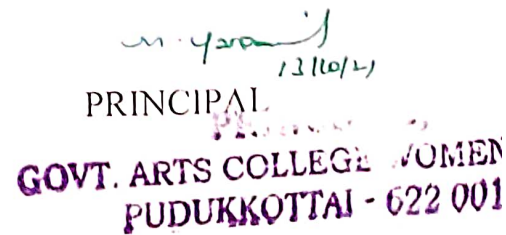 13/10/21
PRINCIPAL
GOVT. ARTS COLLEGE WOMEN
PUDUKKOTTAI - 622 001